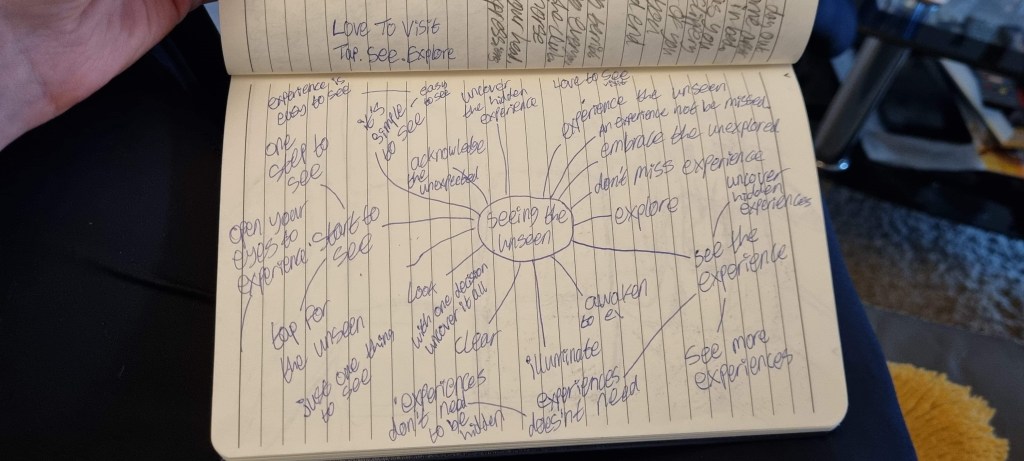 Love To Visit
Tap. See. Explore
experience is
easy to see
easy
to see
it is
simple
to
see
uncover
the hidden
experience
love to see
experience the unseen
An experience not be missed
embrace the unexplored
don't miss experience
uncover
hidden
experiences
one
step to
see
acknowledge
the
unexpected
open your
eyes to
experience
start to
see
seeing the
unseen
explore
see the
experience
tap for
the unseen
look
with one decision
uncover it all
clear
awaken
to ex
illuminate
just one thing
to see
experiences
don't need
to be
hidden
experiences
doesn't need
see more
experiences